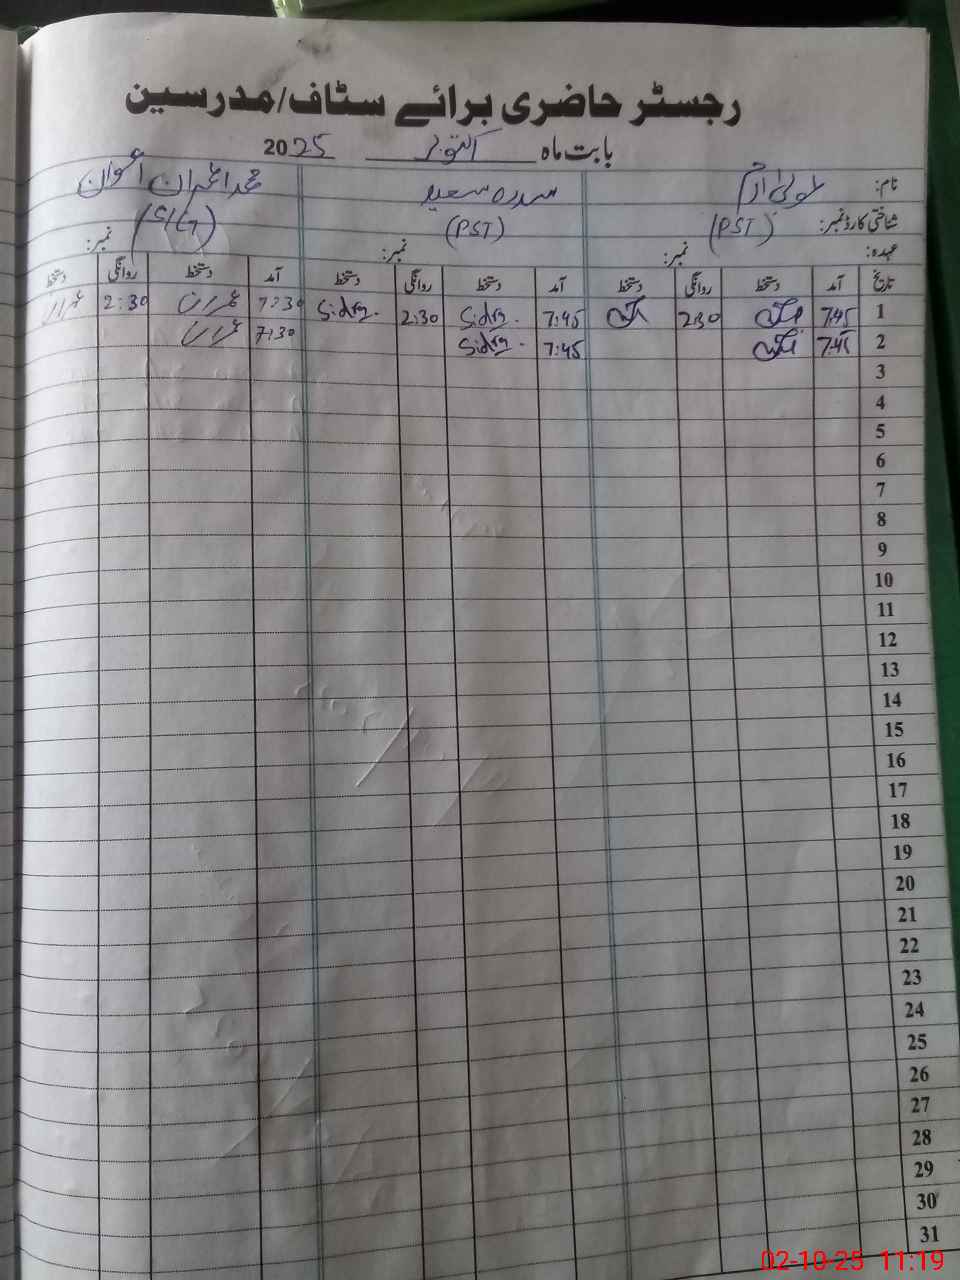 رجسٹر حاضری برائے سٹاف/مدرسین
بابت ماہ اکتوبر 2025
نام: سدرہ سعید محمد عمران اعوان
شناختی کارڈ نمبر: (PST) (PST)
عہدہ: نمبر: نمبر: نمبر:
تاریخ آمد دستخط روانگی دستخط آمد دستخط روانگی دستخط آمد دستخط روانگی دستخط
1 7:45 2:30 7:45 Sidra. 2:30 Sidra. 7:30 عمران 2:30 عمران
2 7:45 7:45 Sidra. 7:30 عمران
3
4
5
6
7
8
9
10
11
12
13
14
15
16
17
18
19
20
21
22
23
24
25
26
27
28
29
30
31
02-10-25 11:19